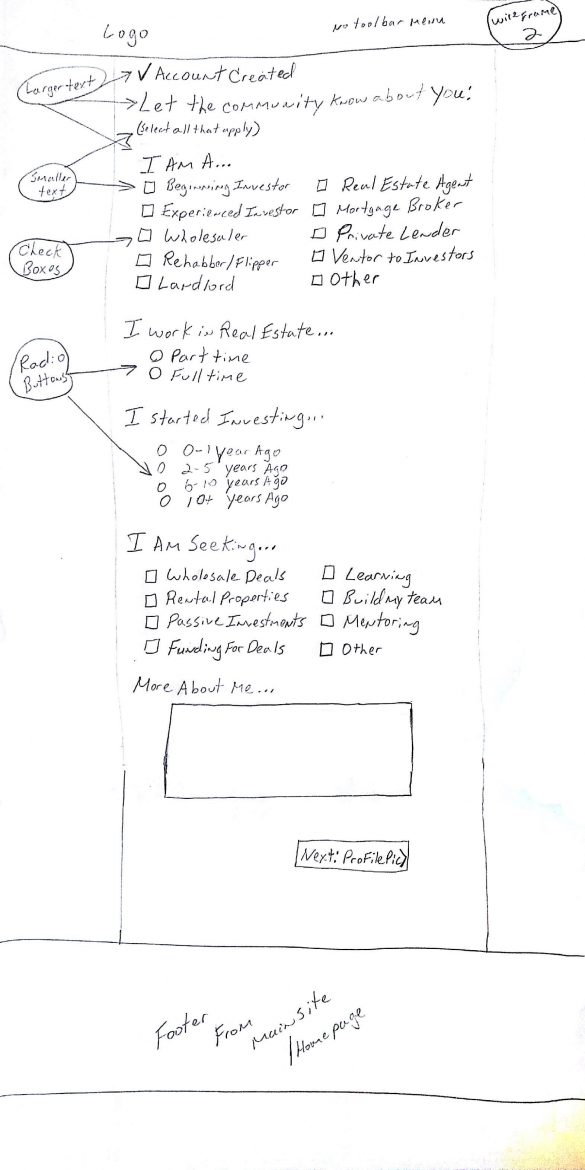 Logo
No toolbar Menu
Wireframe 2
Larger text
✓ Account Created
Let the community know about You:
(Select all that apply)
I AM A...
Smaller text
Beginning Investor
Real Estate Agent
Experienced Investor
Mortgage Broker
Wholesaler
Private Lender
Check Boxes
Rehabber/Flipper
Ventor to Investors
Landlord
Other
I work in Real Estate...
Radio Buttons
Part time
Full time
I started Investing...
0-1 Year Ago
2-5 years Ago
6-10 years Ago
10+ years Ago
I AM Seeking...
Wholesale Deals
Learning
Rental Properties
Build my team
Passive Investments
Mentoring
Funding For Deals
Other
More About Me...
Next: Profile Pic>
Footer From Main Site
/Homepage